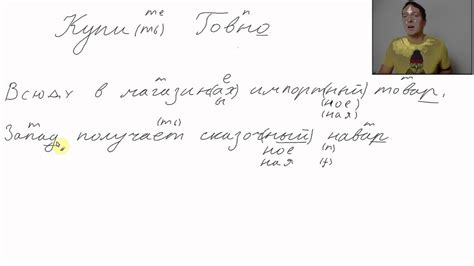 те n
Купи(ть) Говно
m е m
Всюду в магазин(ах) импорт(ный) товар.
и (ное)
(ная)
m (ть) m
Запад получает сказоч(ный) навар
ное (n)
ная (f)